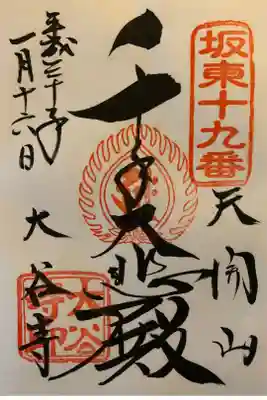 坂東十九番
天開山
千手大悲殿
大谷寺
大谷寺印
平成三十年
一月十六日